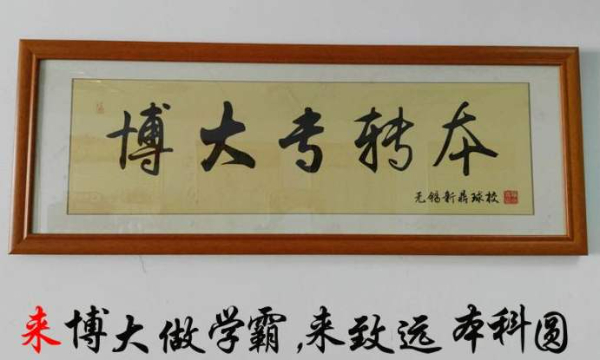 博大专转本
无锡新
来博大做学霸,来致远本科圆